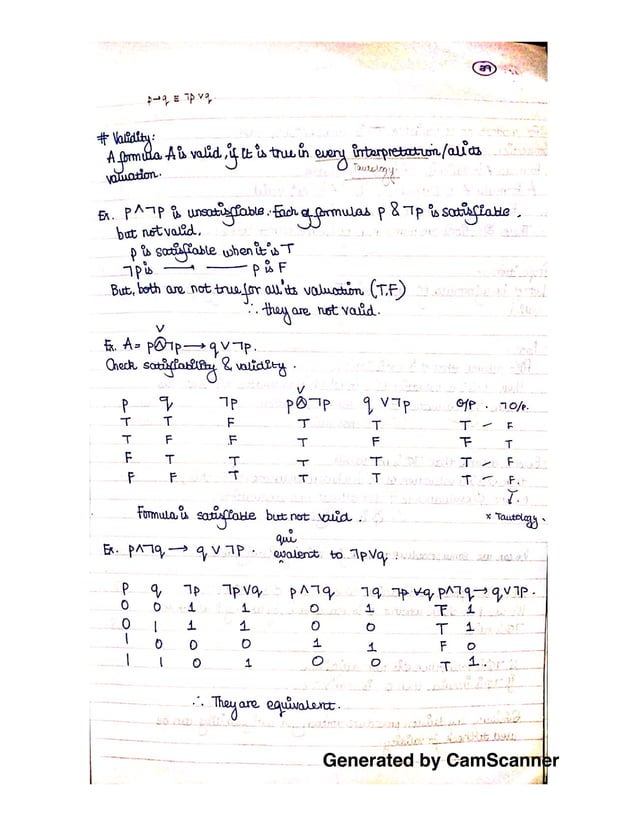 29
p→q ≡ ¬p∨q
# Validity:
A formula A is valid, if it is true in every interpretation/all its
Tautology
valuation.
Ex. p∧¬p is unsatisfiable. Each of formulas p & ¬p is satisfiable,
but not valid.
p is satisfiable when it is T
¬p is —— —— p is F
But, both are not true for all its valuation (T.F)
∴ they are not valid.
∨
Ex. A = p∧¬p → q∨¬p.
Check satisfiability & validity.
∨
p q ¬p p∧¬p q∨¬p O/P. ¬O/P.
T T F T T T – F
T F F T F F T
F T T T T T – F
F F T T T T – F.
T.
Formula is satisfiable but not valid. x Tautology.
qui
Ex. p∧¬q → q∨¬p. evalent to ¬p∨q
p q ¬p ¬p∨q p∧¬q ¬q ¬p∨q p∧¬q→q∨¬p.
0 0 1 1 0 1 F 1
0 1 1 1 0 0 T 1
1 0 0 0 1 1 F 0
1 1 0 1 0 0 T 1.
∴ They are equivalent.
Generated by CamScanner